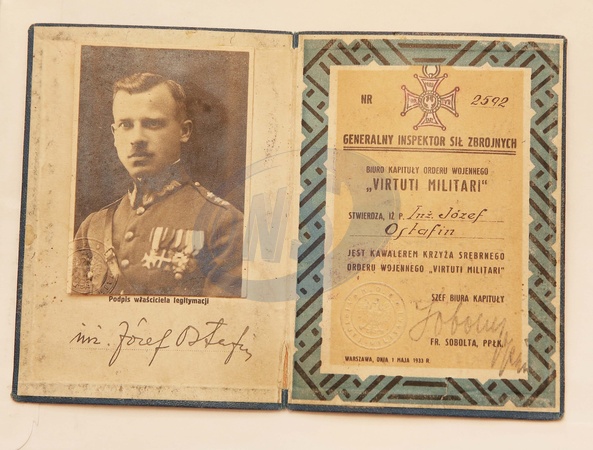 Podpis właściciela legitymacji
inż. Józef Ostafin
NR 2592
GENERALNY INSPEKTOR SIŁ ZBROJNYCH
BIURO KAPITUŁY ORDERU WOJENNEGO
„VIRTUTI MILITARI"
STWIERDZA, IŻ P. Inż. Józef
Ostafin
JEST KAWALEREM KRZYŻA SREBRNEGO
ORDERU WOJENNEGO „VIRTUTI MILITARI"
SZEF BIURA KAPITUŁY
FR. SOBOLTA, PPŁK.
WARSZAWA, DNIA 1 MAJA 1933 R.